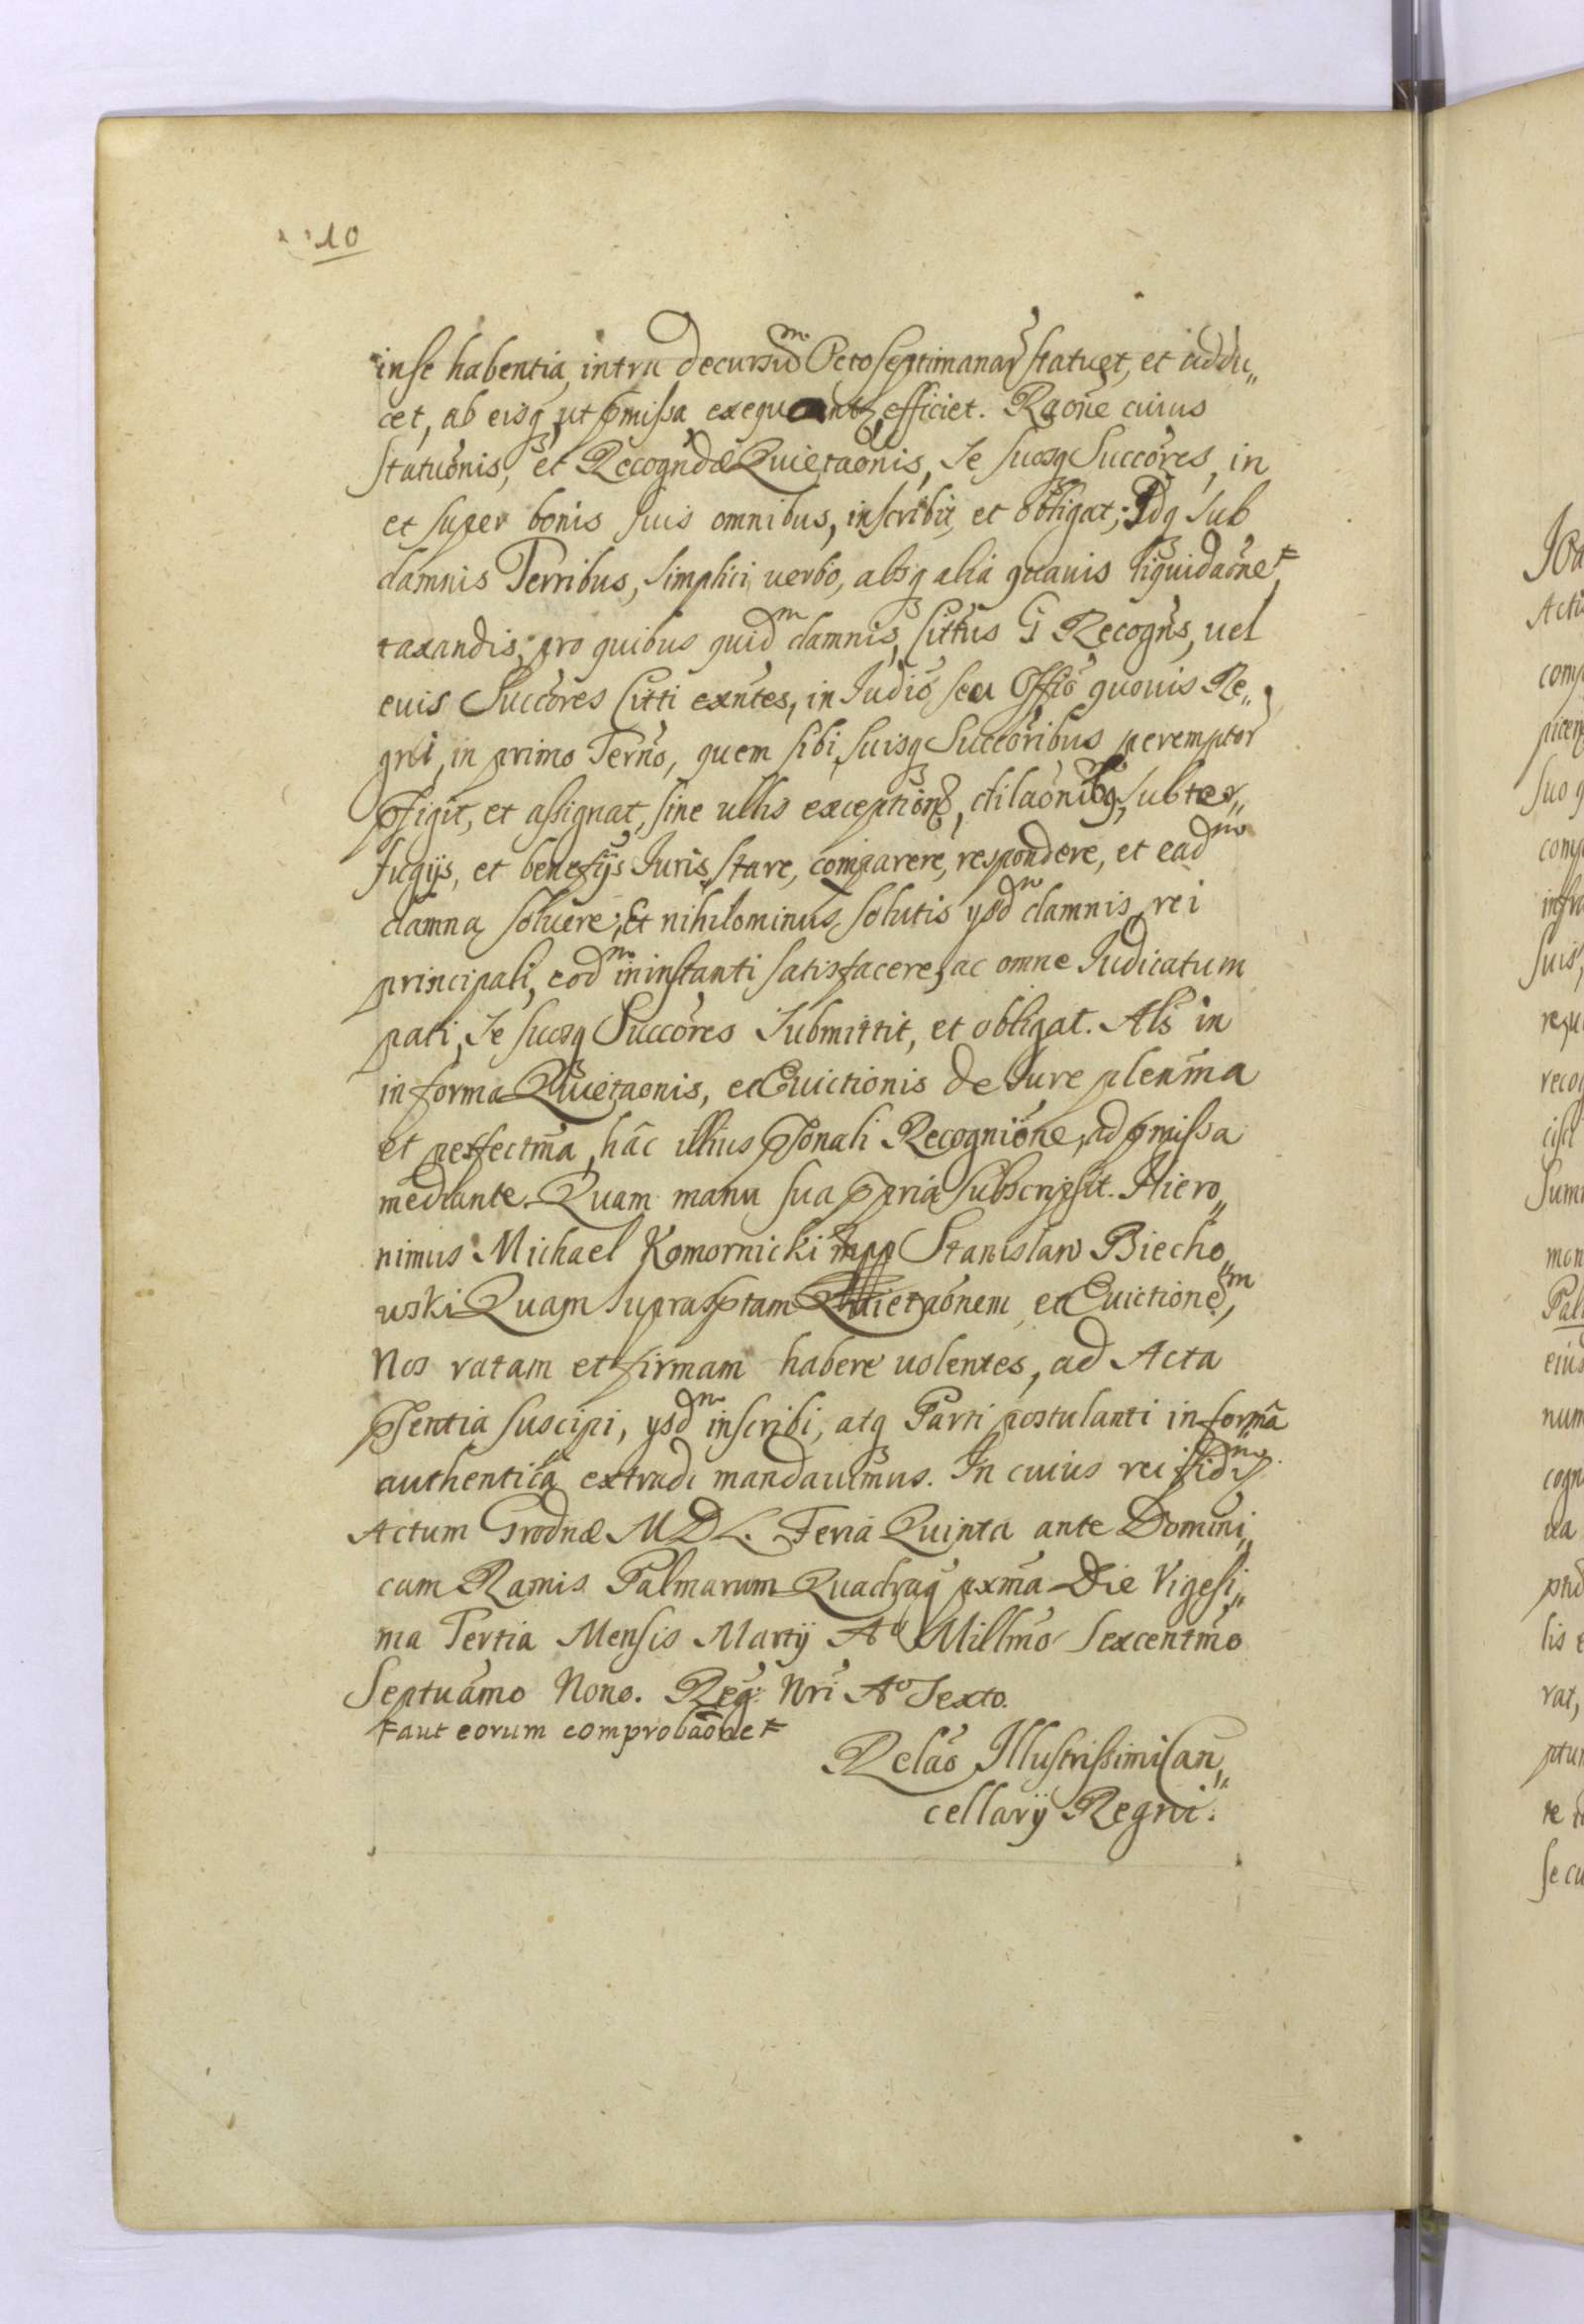 10
in se habentia, intra decursum Octo septimanar statuet, et addu„
cet, ab eisq ut pmissa exequantr, efficiet. Raone cuius
statuonis, et Recogndæ Quietaonis, Se suosq Succores, in
et super bonis suis omnibus, inscribit, et obligat; Idq sub
damnis Terribus, simplici verbo, absq alia quavis liquidaone ⸗
taxandis; pro quibus quidm damnis, Cittus G Recogns, uel
euis Succores Citti exntes, in Judio seu Offio quouis Re„
gni, in primo Terno, quem sibi, suisq Succoribus peremptor
pfigit, et assignat, sine ullis exceptionb, dilaonibq, subter„
fugijs, et benefijs Juris stare, comparere, respondere, et eadm
damna soluere; Et nihilominus solutis ysdm damnis, rei
principali, eodm in instanti satisfacere, ac omne Judicatum
pati, Se suosq Succores Submittit, et obligat. Als in
in forma Quietaonis, et Euictionis de Iure plenma
et perfectma, hac illius psonali Recognione, ad pmissa
mediante. Quam manu sua ppria subscripsit. Hiero„
nimus Michael Komornicki mpp Stanislaw Biecho„
wski Quam suprasptam Quietaonem et Euictionem,
Nos ratam et firmam habere uolentes, ad Acta
psentia suscipi, ysdm inscribi, atq Parti postulanti in forma
authentica extradi mandauimus. In cuius rei fidm
Actum Grodnæ M D L. Feria Quinta ante Domini„
cam Ramis Palmarum Quadrag pxma Die Vigesi„
ma Tertia Mensis Martij Ao Millmo Sexcentmo
Septuamo Nono. Reg: Nri Ao Sexto.
⸗ aut eorum comprobaone ⸗
Relao Illustrissimi Can„
cellarij Regni.